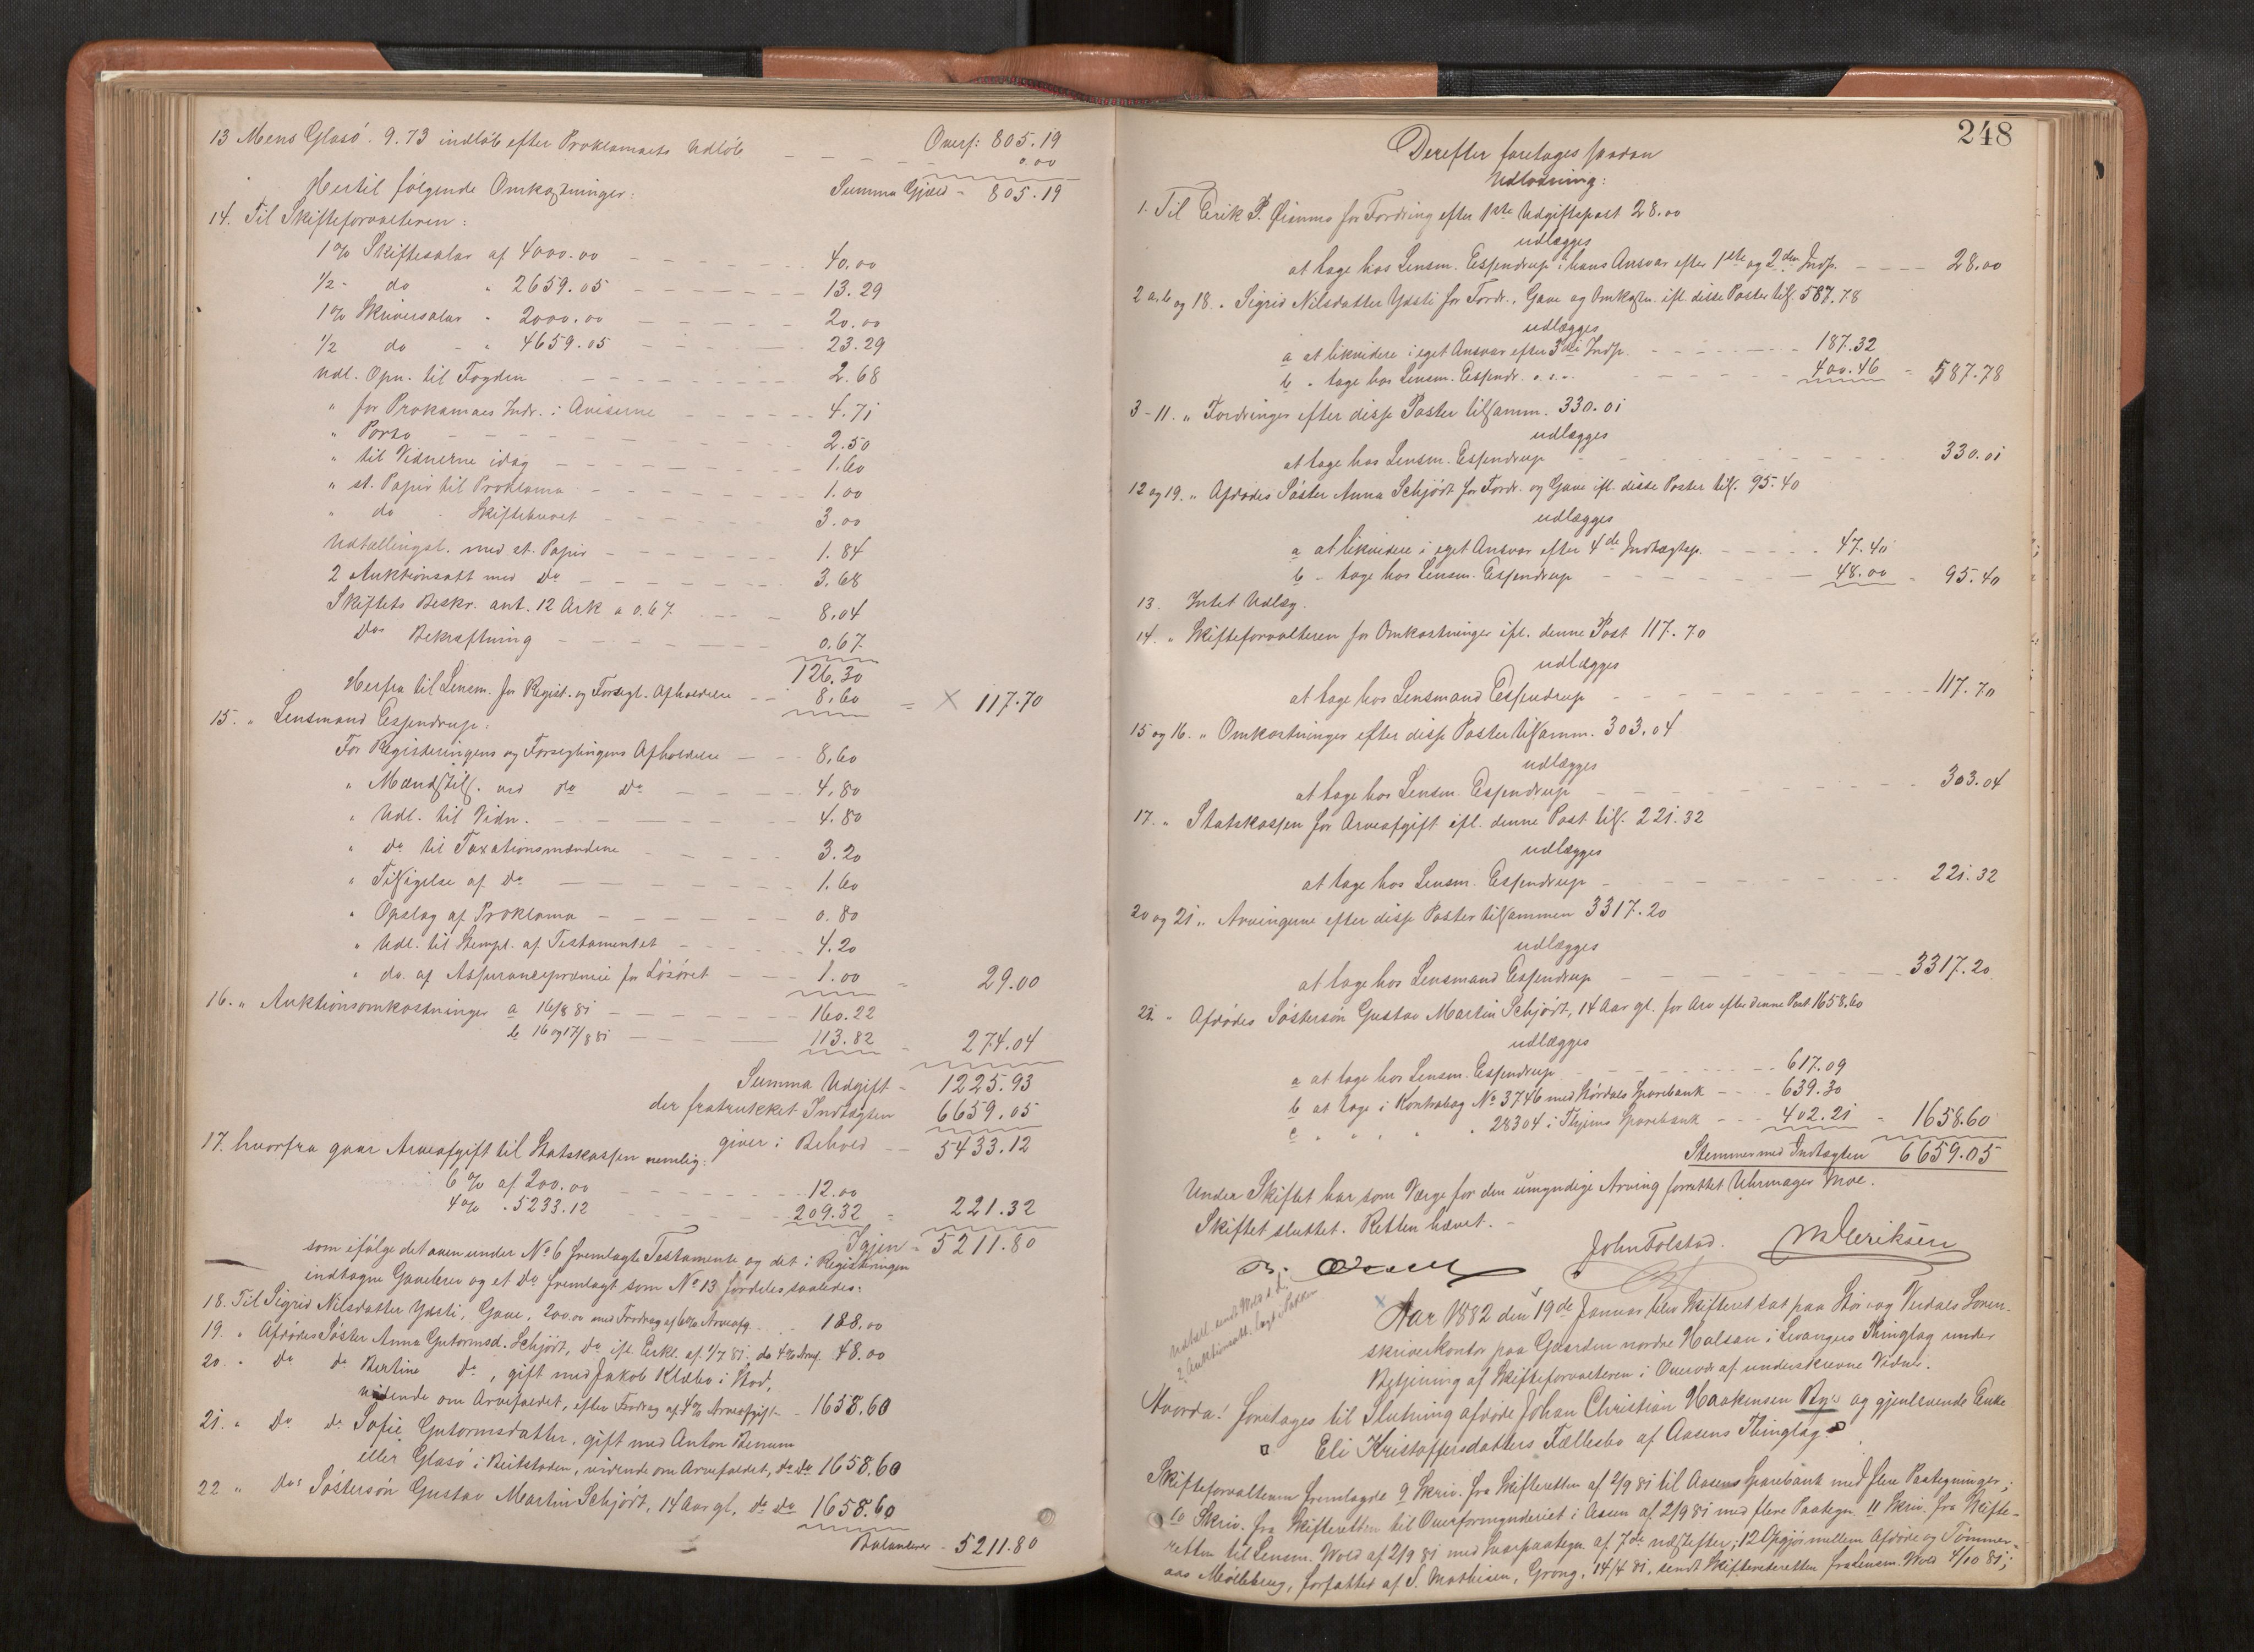 13 Mens Glasö. 9.73 indløb efter Proklamaets Udløb Overf: 805.19
0.00
Summa Gjæld - 805.19
Hertil følgende Omkostninger:
14. Til Skifteforvalteren:
1% Skiftesalær af 4000.00 40.00
1/2 - do " 2659.05 13.29
1% Skriversalær " 2000.00 20.00
1/2 do - " 4659.05 23.29
Udl. Opn. til Fogden 2.68
" for Prokamaes Indr. i Aviserne 4.71
" Porto 2.50
" til Vidnerne idag 1.60
" st. Papir til Proklama 1.00
" do - Skiftebrevet 3.00
Udtællingsl. med st. Papir 1.84
2 Auktionsatt med Do 3.68
Skiftets Beskr. ant. 12 Ark a 0.67 8.04
Dos Bekræftning 0.67
126.30
Herfra til Lensm. for Regist. og Forsegl. Afholdelse 8.60 = × 117.70
15. " Lensmand Espendrup:
For Registeringens og Forseglingens Afholdelse 8.60
" Mændstils. ved do Do 4.80
" Udl. til Vidn. 4.80
" do til Taxationsmændene 3.20
" Tilsigelse af Do 1.60
" Opslag af Proklama 0.80
" Udl. til Stempl. af Testamentet 4.20
" do. af Assurancepræmie for Løsøret 1.00 29.00
16. " Auktionsomkostninger a 16/8 81 160.22
b 16 og 17/8 81 113.82 274.04
Summa Udgift - 1225.93
der fratrukket Indtægten 6659.05
giver i Behold 5433.12
17. hvorfra gaar Arveafgift til Statskassen nemlig:
6% af 200.00 12.00
4% . 5233.12 209.32 221.32
Igjen = 5211.80
som ifølge det oven under No 6 fremlagte Testamente og det i Registeringen
indtagne Gavebrev og et Do fremlagt som No 13 fordeles saaledes:
18. Til Sigrid Nilsdatter Ydsti, Gave, 200.00 med Fradrag af 6% Arveafg. 188.00
19. " Afdødes Søster Anna Gutormsd. Schjødt, Do ifl. Erkl. af 1/7 81. do 4% Aravf. 48.00
20. " Do do Bertine do, gift med Jakob Klæbo i Stod,
vidende om Arvefaldet, efter Fradrag af 4% Arveafgift - 1658.60
21. " Do do Sofie Gutormsdatter, gift med Anton Benum
eller Glasö i Beitstaden, vidende om Arvefaldet, do do 1658.60
22 " Dos Søstersøn Gustav Martin Schjødt, 14 Aar gl. do do 1658.60
Balancerer - 5211.80
248
Derefter foretages saadan
Udlodning:
1. Til Erik P. for Fordring efter 1ste Udgiftspost 28.00
udlægges
at tage hos Lensm. Espendrup i hans Ansvar efter 1ste og 2den Indp. 28.00
2 a.b og 18. " Sigrid Nilsdatter Ydsti for Fordr., Gave og Omkostn. ifl. disse Poster tils. 587.78
udlægges
a at likvidere i eget Ansvar efter 3die Indp. 187.32
b " tage hos Lensm. Espendr. " " 400.46 = 587.78
3-11. " Fordringer efter disse Poster tilsamm. 330.01
udlægges
at tage hos Lensm. Espendrup 330.01
12 og 19. " Afdødes Søster Anna Schjødt for Fordr. og Gave ifl. disse Poster tils. 95.40
udlægges
a at likvidere i eget Ansvar efter 4de Indtægtsp. 47.40
b - tage hos Lensm. Espendrup 48.00 = 95.40
13. Intet Udlæg.
14. " Skifteforvalteren for Omkostninger ifl. denne Post 117.70
udlægges
at tage hos Lensmand Espendrup 117.70
15 og 16. " Omkostninger efter disse Poster tilsamm. 303.04
udlægges
at tage hos Lensm. Espendrup 303.04
17. " Statskassen for Arveafgift ifl. denne Post tils. 221.32
udlægges
at tage hos Lensm. Espendrup 221.32
20 og 21. " Arvingerne efter disse Poster tilsammen 3317.20
udlægges
at tage hos Lensmand Espendrup 3317.20
22 " Afdødes Søstersøn Gustav Martin Schjødt, 14 Aar gl. for Arv efter denne Post 1658.60
udlægges
a at tage hos Lensm. Espendrup 617.09
b at tage i Kontrabog No 3746 med Størdals Sparebank 639.30
c " " " " " 28304 i Thjems Sparebank 402.21 = 1658.60
Stemmer med Indtægten 6659.05
Under Skiftet har som Værge for den umyndige Arving forrettet Uhrmager Moe.
Skiftet sluttet. Retten hævet. -
John Tolstad. M Eriksen
Aar 1882 den 19de Januar blev Skifteret sat paa Stør- og Verdals Soren-
skriverkontor paa Gaarden nordre Halsan i Levangers Thinglag under
Betjening af Skifteforvalteren i Overvær af underskrevne Vidner.
Hvorda! foretages til Slutning afdøde Johan Christian Haakensen Bye's og gjenlevende Enke
Eli Kristoffersdatters Fællesbo af Aasens Thinglag.
Skifteforvalteren fremlagde 9 Skriv. fra Skifteretten af 2/9 81 til Aasens Sparebank med flere Paategninger;
10 Skriv. fra Skifteretten til Overformynderiet i Aasen af 2/9 81 med flere Paategn. 11 Skriv. fra Skifte-
retten til Lensm. Wold af 2/9 81 med Svarpaategn. af 7de næstefter; 12 Opgjør mellem Afdøde og Tømmer-
aas Møllebrug, forfattet af S. Mathisen, Grong, 14/4 81, sendt Skifteretten fra Lensm. Wold 4/10 81;